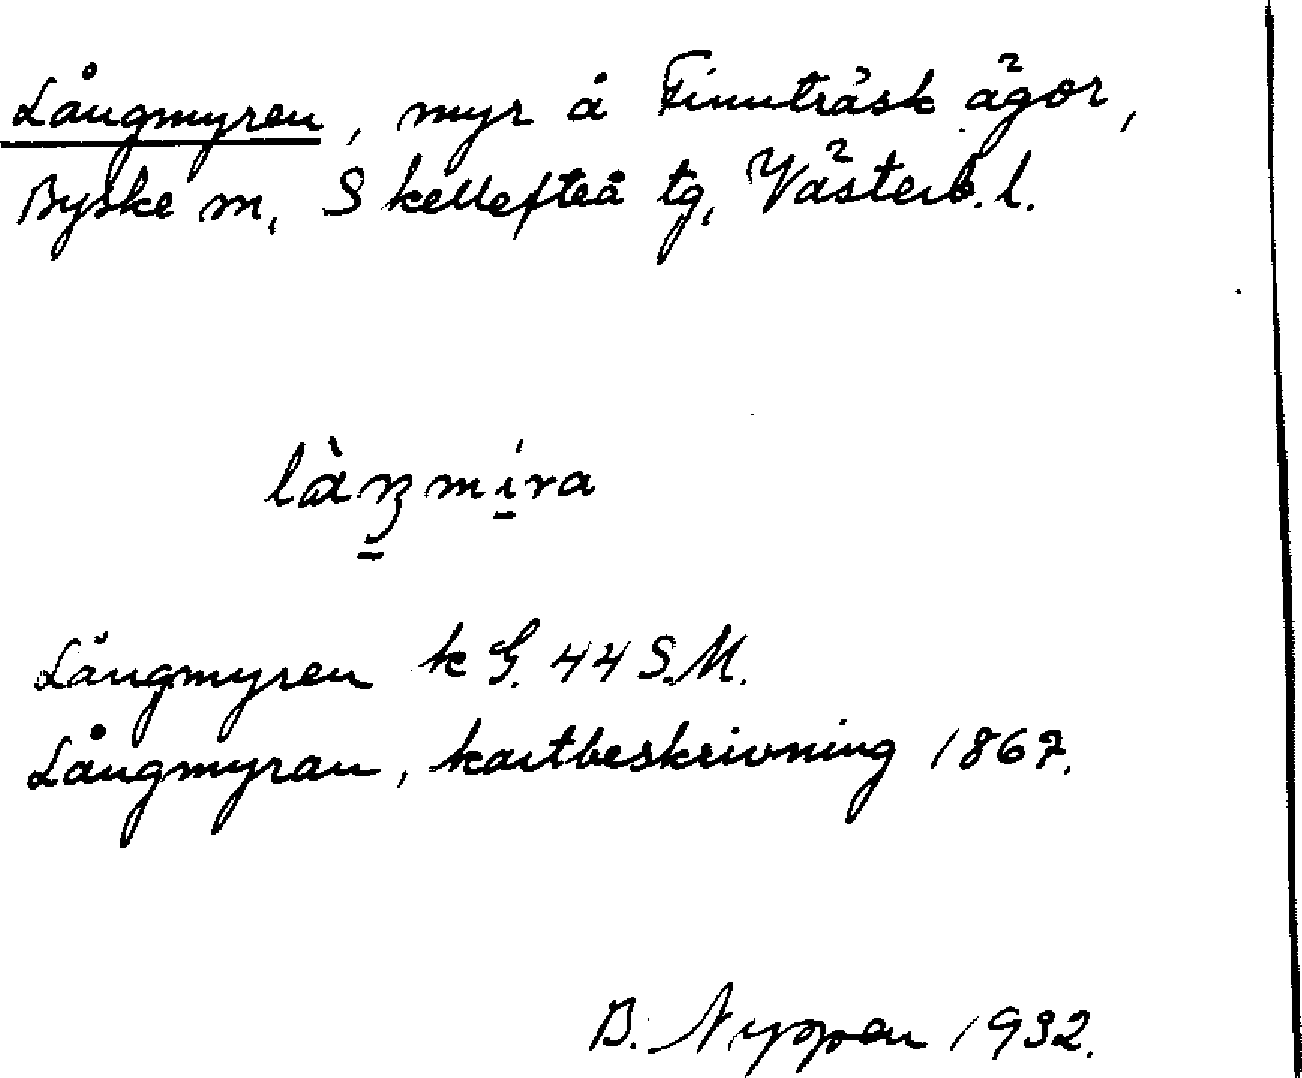 Långmyren, myr å Finnträsk ägor,
Byske sn, Skellefteå tg, Västerb. l.
làŋmi̱ra
Långmyren k G. 44 S.M.
Långmyran, kartbeskrivning 1867.
B. Nyppen 1932.